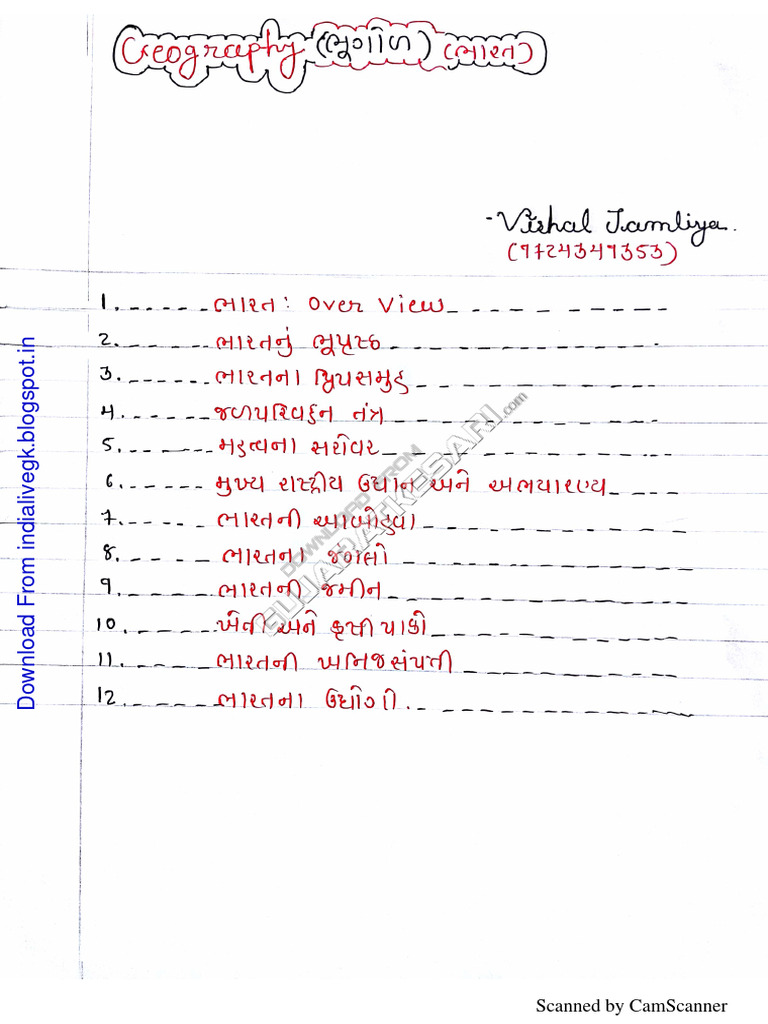 Geography (ભૂગોળ) (ભારત)
- Vishal Jamliya.
(9724349353)
1. ભારત : Over View
2. ભારતનું ભૂપૃષ્ઠ
3. ભારતના દ્વિપસમુહ
4. જળપરિવહન તંત્ર
5. મહત્વના સરોવર
6. મુખ્ય રાષ્ટ્રીય ઉધાન અને અભયારણ્ય
7. ભારતની આબોહવા
8. ભારતના જંગલો
9. ભારતની જમીન
10. ખેતી અને કૃષી પાકો
11. ભારતની ખનિજસંપતી
12. ભારતના ઉધોગો.
Download From indialivegk.blogspot.in
DOWNLOAD FROM
GUJARATKESARI.com
Scanned by CamScanner